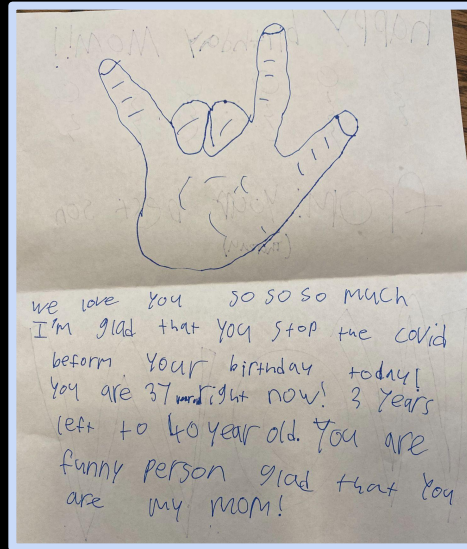 we love you so so so much
I'm glad that you stop the covid
beform your birthday today!
You are 37 right now! 3 years
left to 40 year old. You are
funny person glad that you
are my mom!